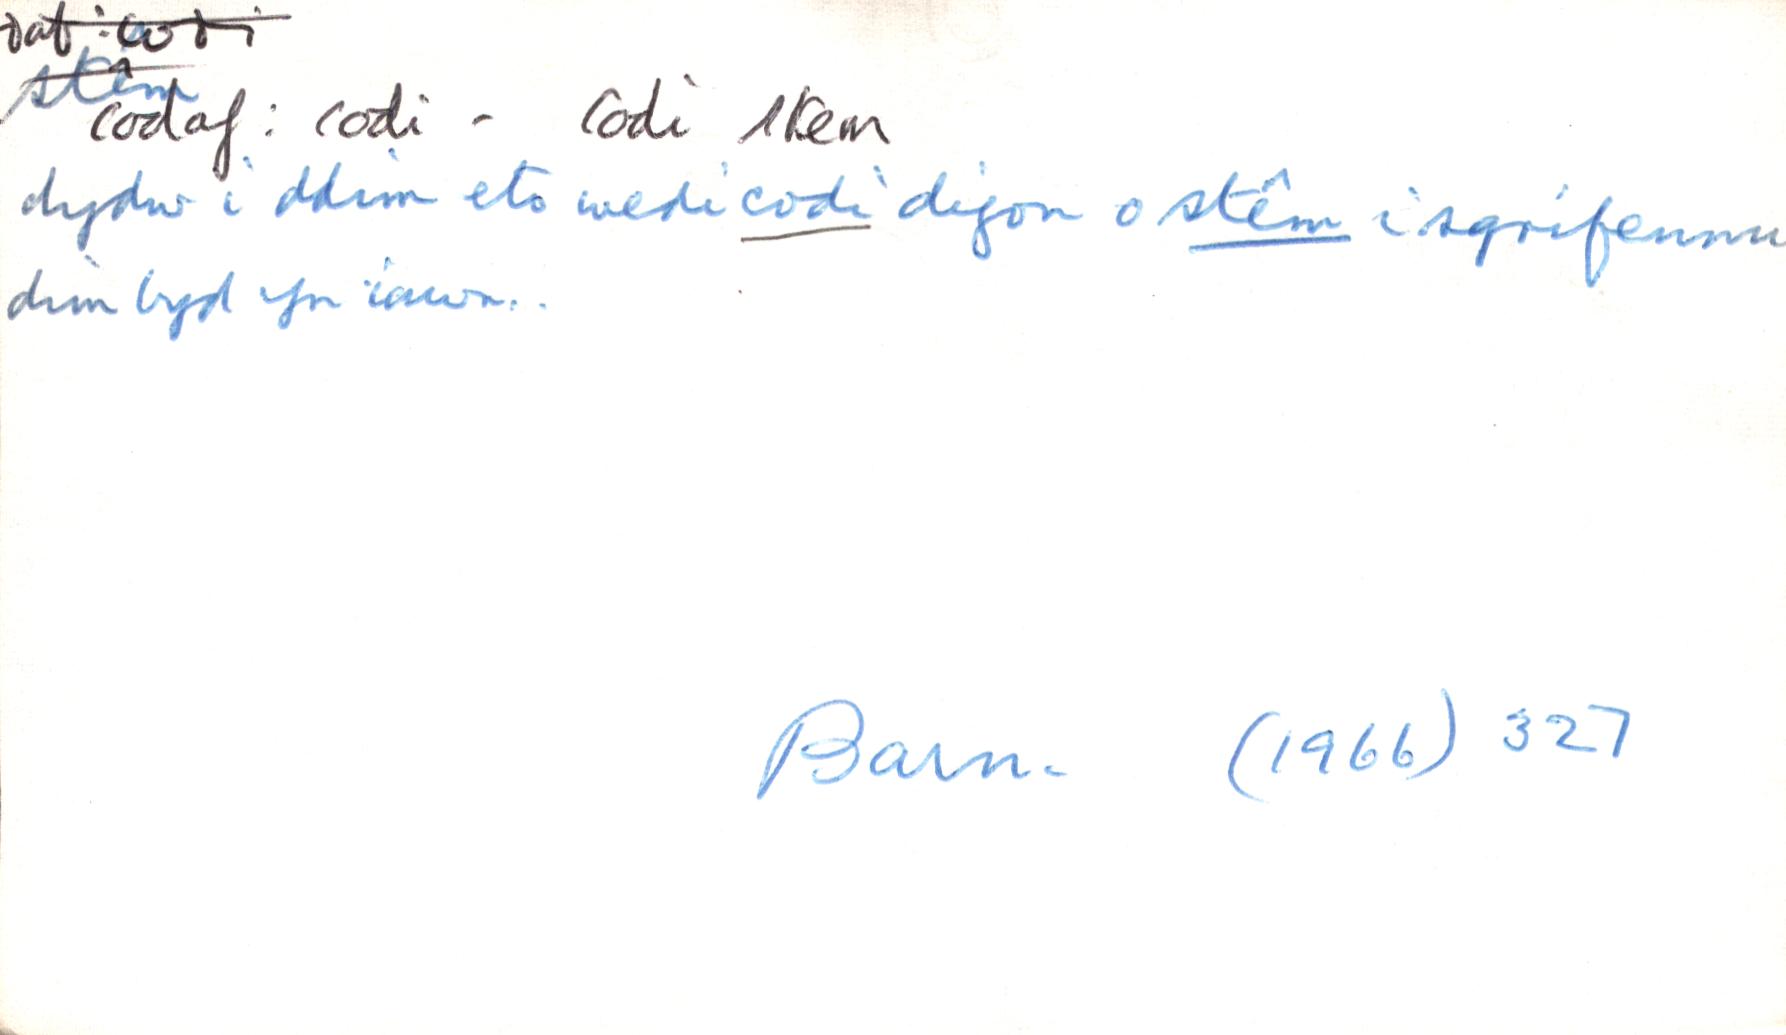 daf: codi
stêm
codaf: codi - codi stem
dydw i ddim eto wedi codi digon o stêm i sgrifennu
dim byd yn iawn..
Barn. (1966) 327